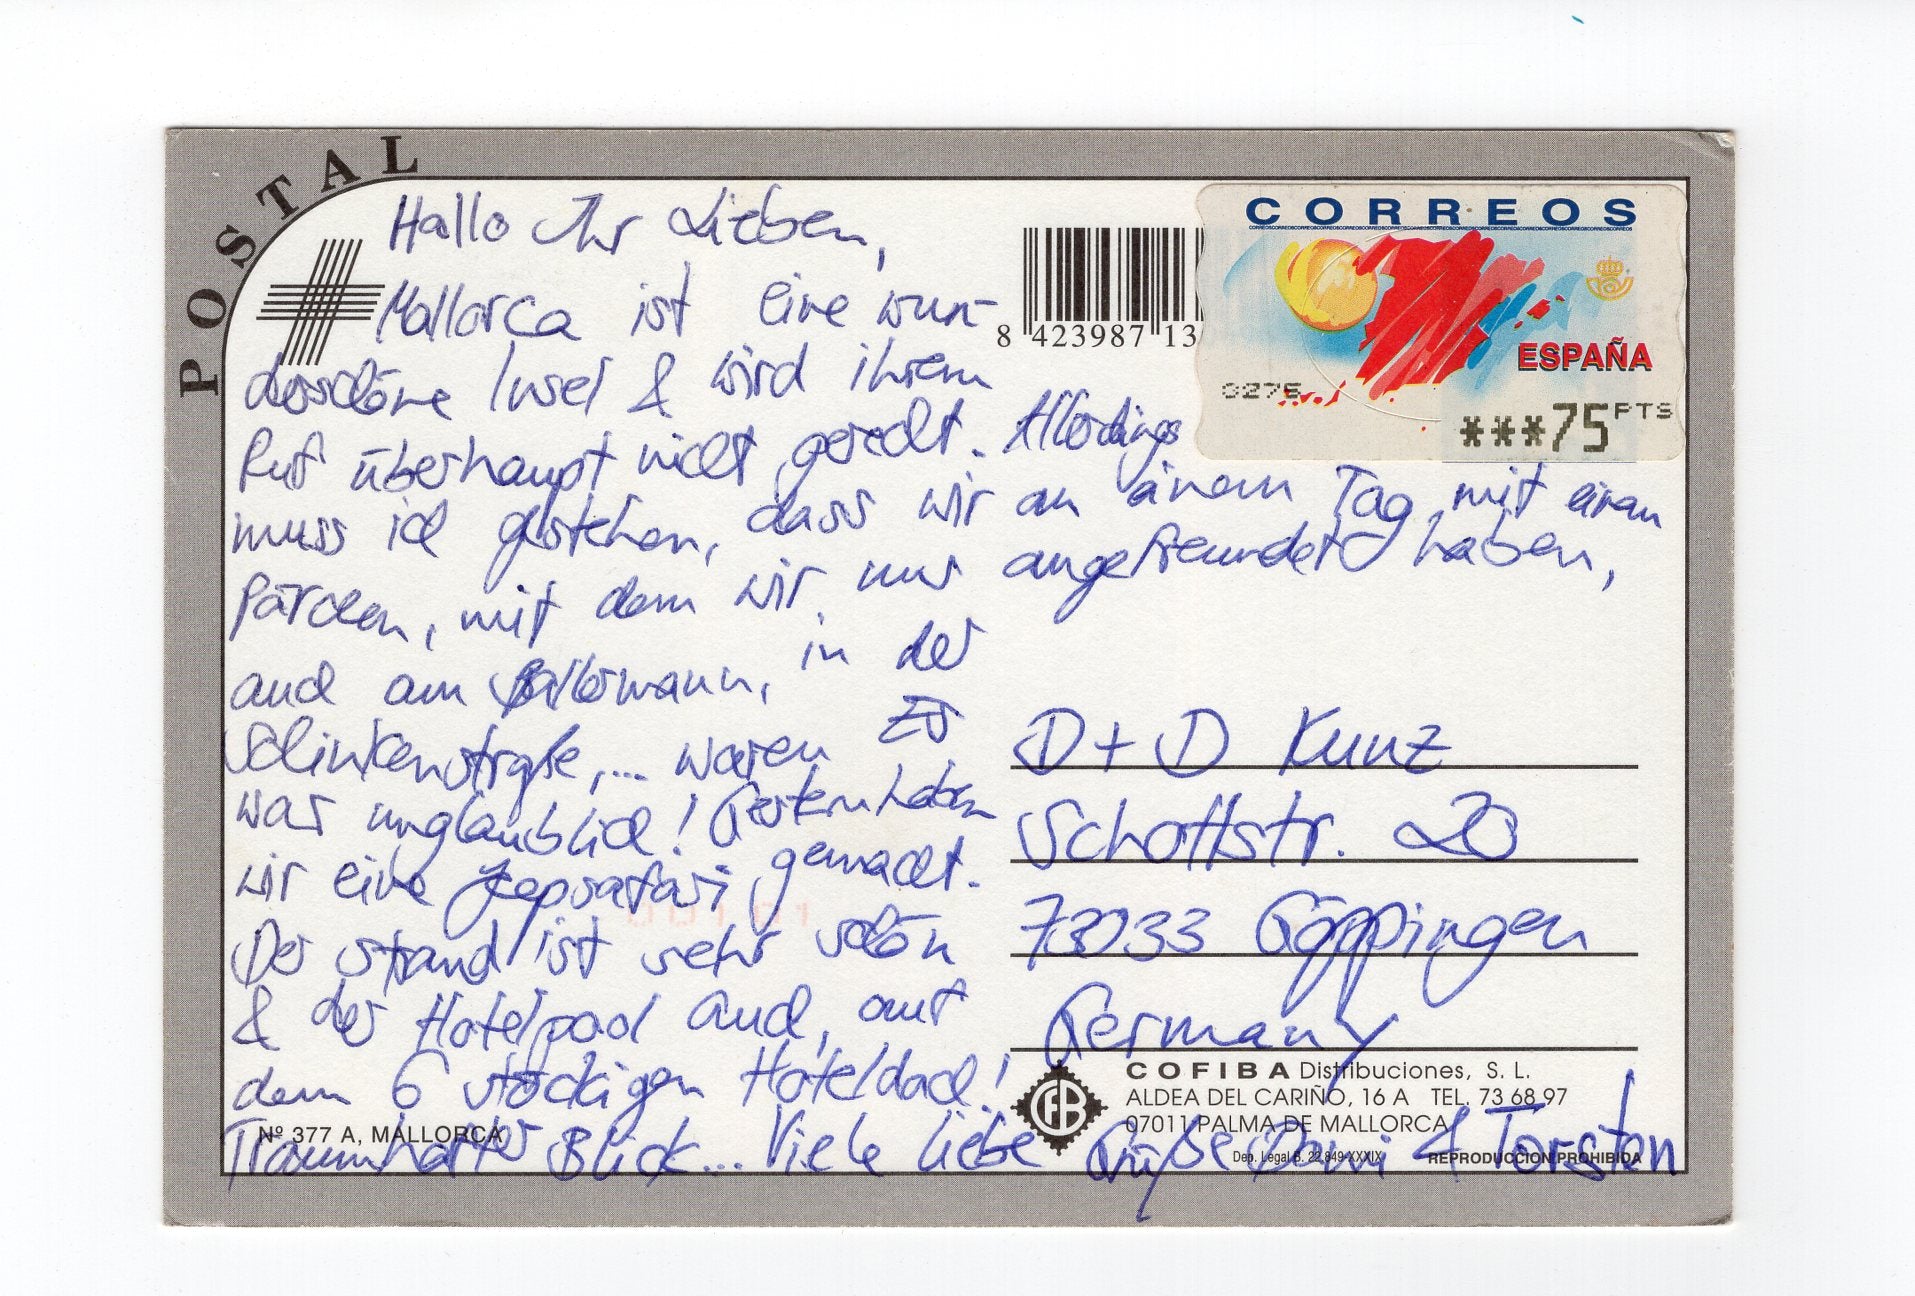 POSTAL
Hallo Ihr Lieben,
Mallorca ist eine wun-
derschöne Insel & wird ihrem
Ruf überhaupt nicht gerecht. Allerdings
muss ich gestehen, dass wir an einem Tag mit einem
Pärchen, mit dem wir uns angefreundet haben,
auch am Ballermann, in der
Schinkenstraße,... waren Es
war unglaublich! Gestern haben
wir eine Jeepsafari gemacht.
Der Strand ist sehr schön
& der Hotelpool auch, auf
dem 6 stöckigen Hoteldach!
Traumhafter Blick... Viele liebe Grüße Dani & Torsten
8 423987 13
CORREOS
ESPAÑA
0276
***75 PTS
D + D Kunz
Schottstr. 20
73033 Göppingen
Germany
COFIBA Distribuciones, S. L.
ALDEA DEL CARIÑO, 16 A TEL. 73 68 97
07011 PALMA DE MALLORCA
Dep. Legal B. 22.849-XXXIX
REPRODUCCION PROHIBIDA
Nº 377 A, MALLORCA